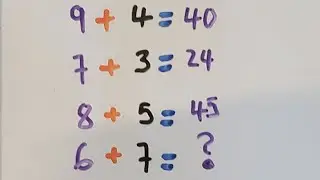 9 + 4 = 40
7 + 3 = 24
8 + 5 = 45
6 + 7 = ?